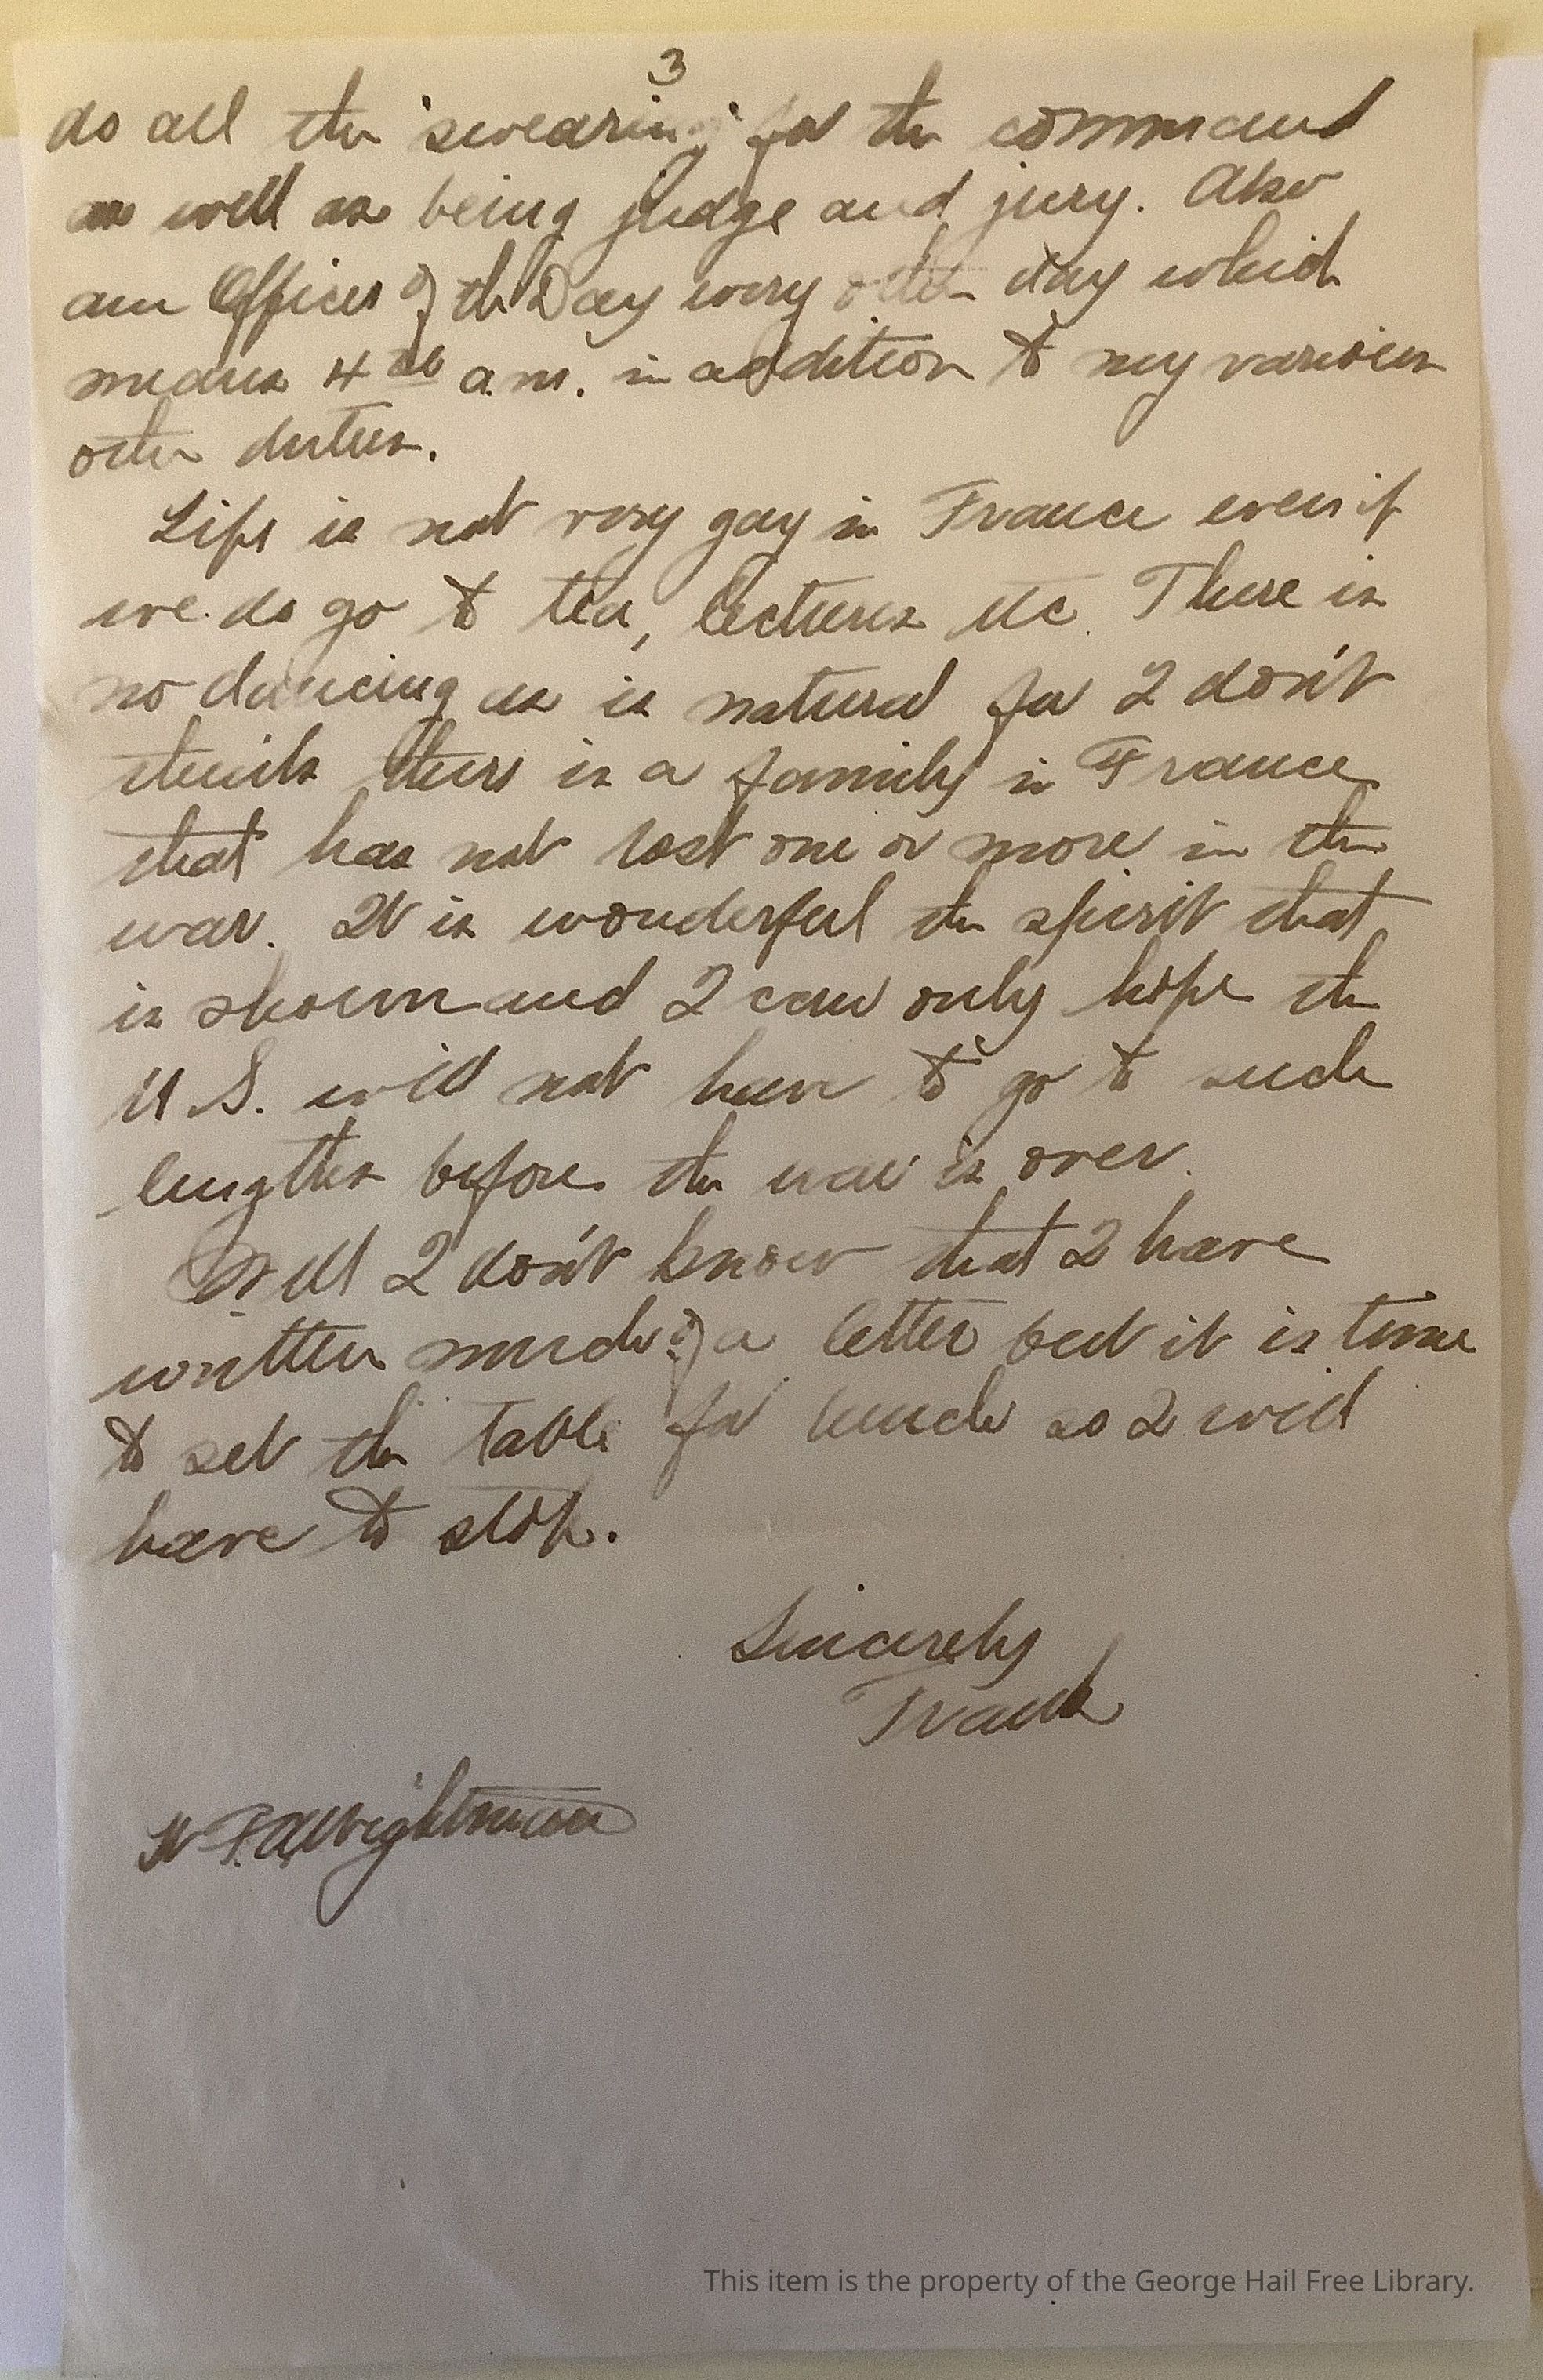 3
do all the "swearing" for the command
as well as being judge and jury. Also
am Officer of the Day every other day which
means 4 00 a.m. in addition to my various
other duties.
Life is not very gay in France even if
we do go to tea, lectures etc. There is
no dancing as is natural for I don't
think there is a family in France
that has not lost one or more in the
war. It is wonderful the spirit that
is shown and I can only hope the
U.S. will not have to go to such
lengths before the war is over.
Well I don't know that I have
written much of a letter but it is time
to set the table for lunch so I will
have to stop.
Sincerely
Frank
Wightman
This item is the property of the George Hail Free Library.